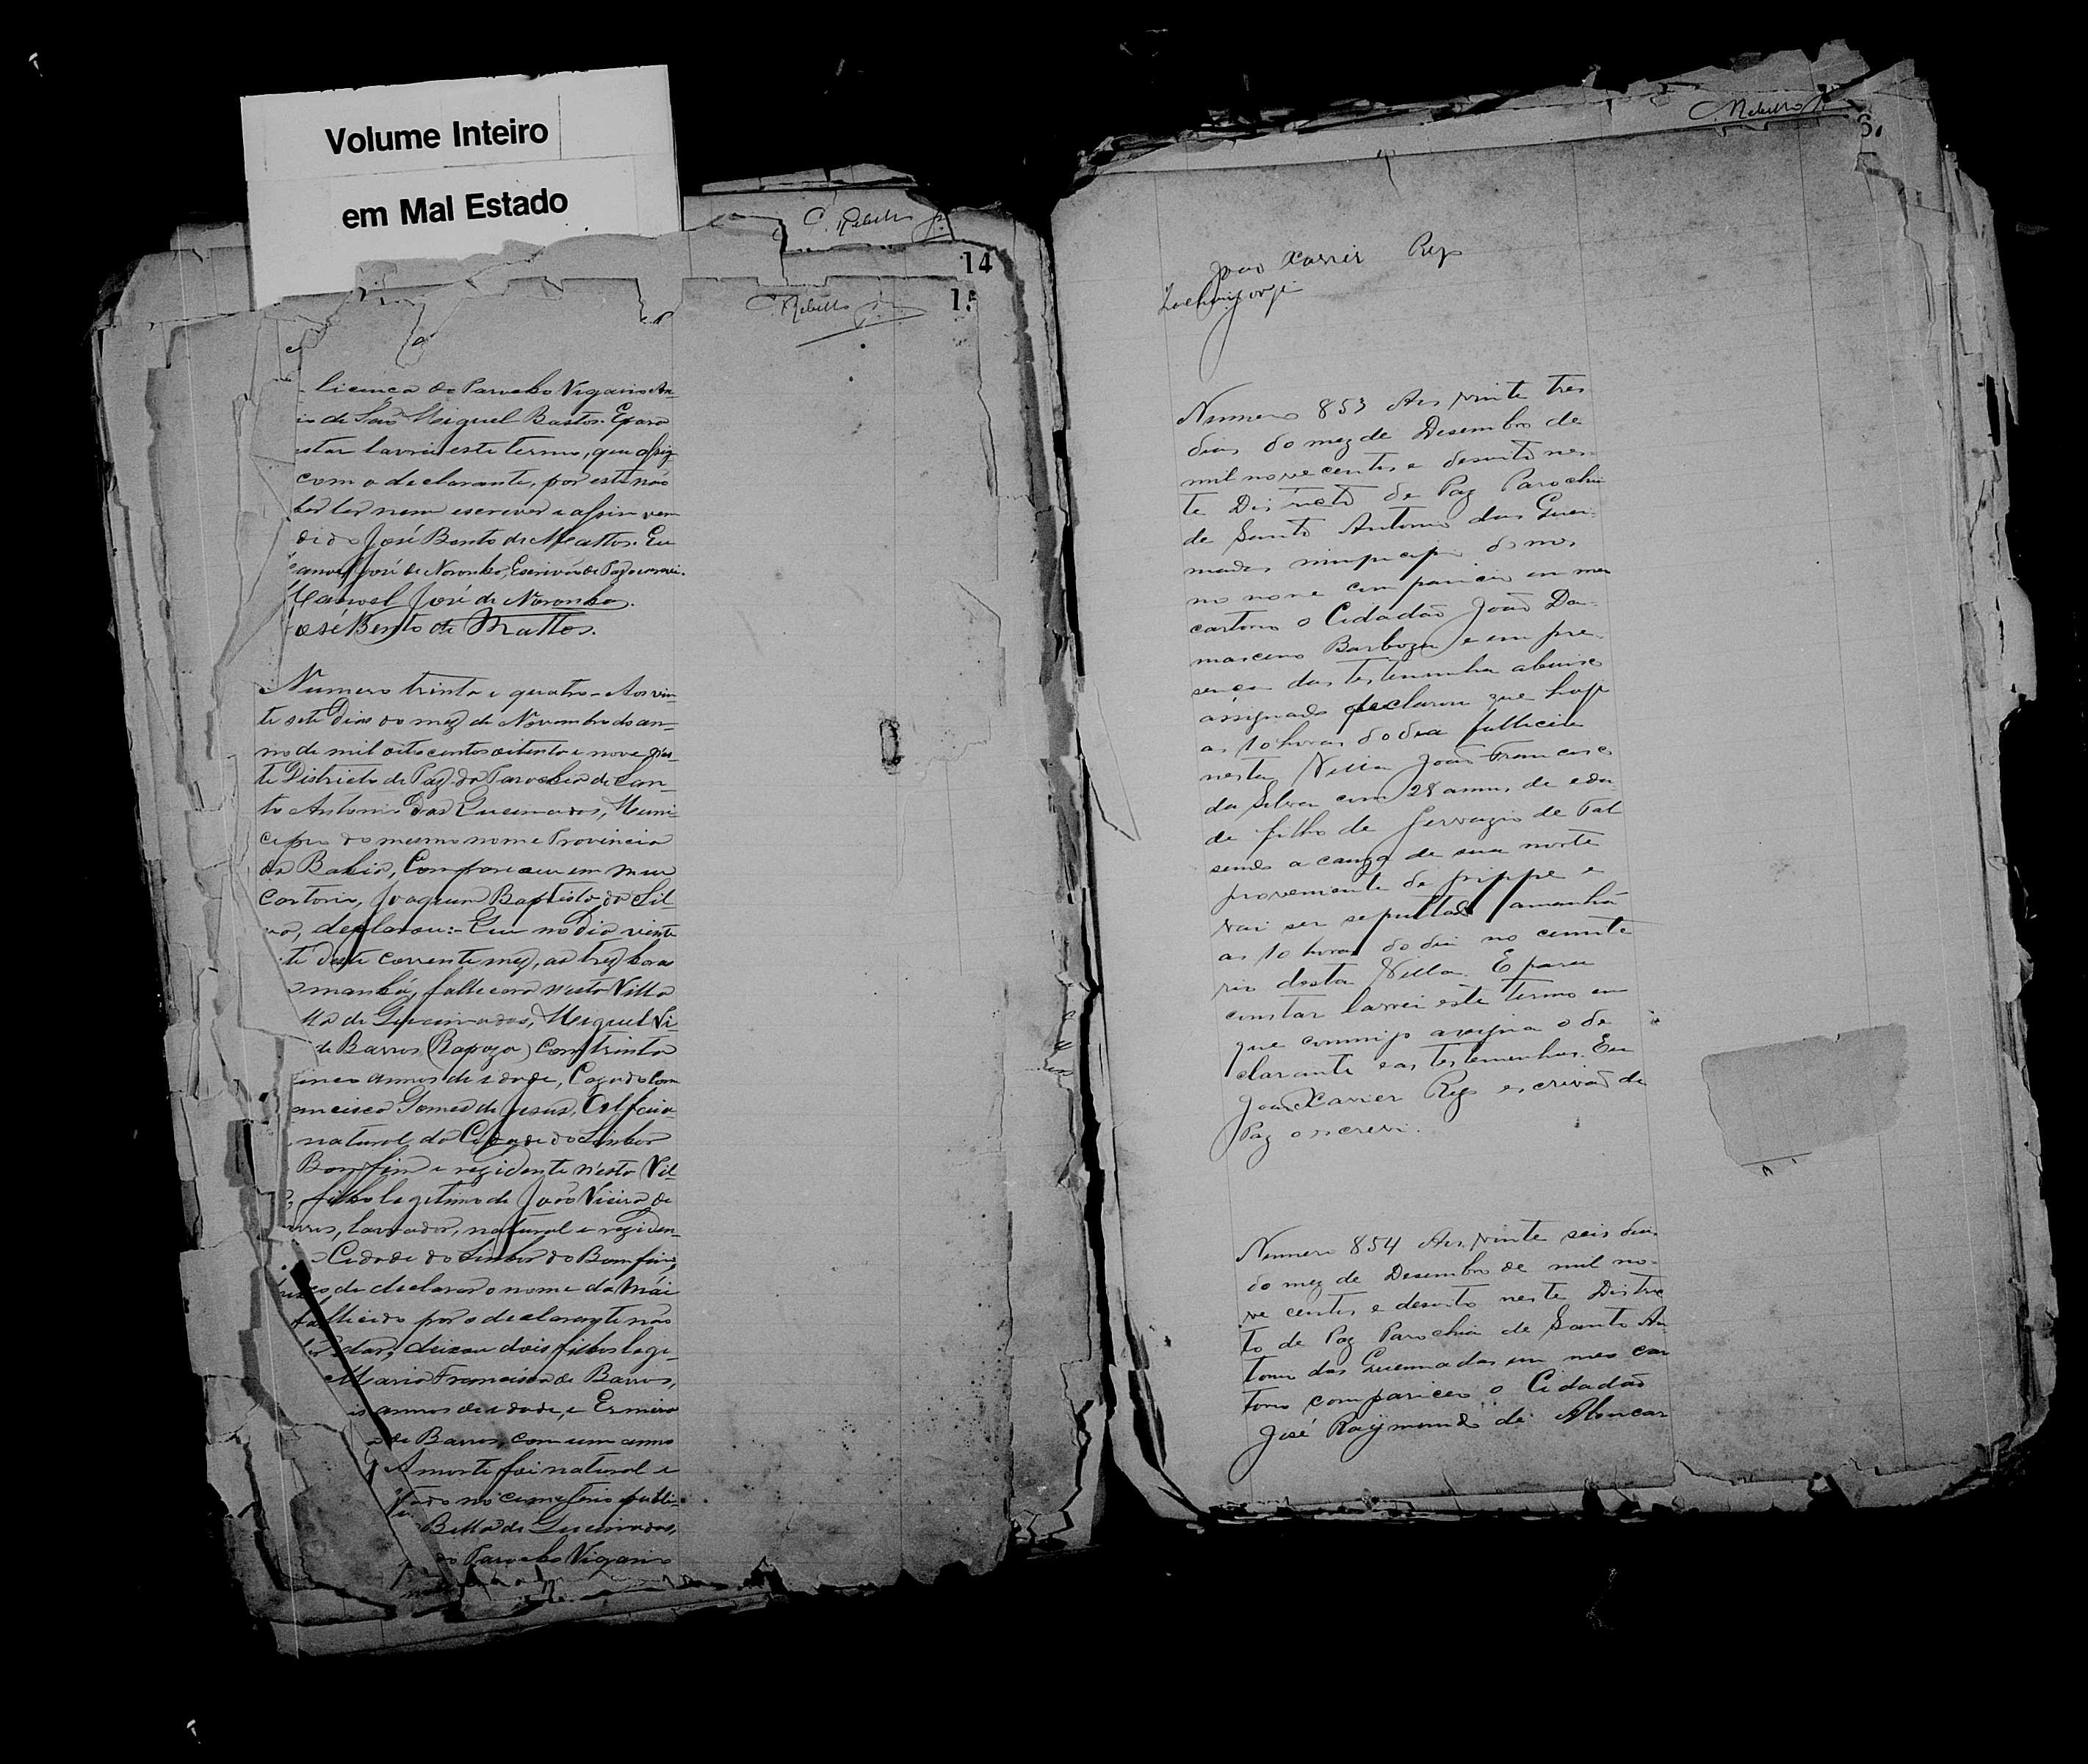 Volume Inteiro
em Mal Estado
C. Rebello Jr.
14
C. Rebello Jr.
licença do Parocho Vigario An-
io de São Miguel Bastos. E para
star lavrei este termo, que assig
com o declarante, por este não
ber ler nem escrever e assim ven
dido José Bento de Mattos. Eu
anoel José de Noronha, Escrivão de Paz o escrevi.
Manoel José de Noronha.
ose Bento de Mattos.
Numero trinta e quatro - Aos vin-
te sete Dias do mez de Novembro do an-
no de mil oitocentos oitenta e nove, n'es-
te Districto de Paz da Parochia de San-
to Antonio das Queimadas, Muni-
cipio do mesmo nome Provincia
da Bahia, Compareceu em meu
Cartorio, Joaquim Baptista da Sil-
va, declarou:- Que no Dia vinte
te deste corrente mez, as trez horas
manhã, fallecera nesta Villa
lla de Queimadas, Miguel Vi-
de Barros (Rapozo) Com trinta
inco annos de idade, Cazado Com
ancisca Gomes de Jesus, Alfaia-
natural da Cidade do Senhor
Bomfim e rezidente n'esta Vil
filho legitimo de João Vieira de
rros, lavrador, natural e reziden-
Cidade do Senhor do Bomfim,
de declarar o nome da Mãi
fallecido por o declarante não
dar, deixou dois filhos legi-
Maria Francisca de Barros,
is annos de idade, e
de Barros, com um anno
A morte foi natural e
tado no cemeterio publi-
Bella de Queimadas,
do Parocho Vigario
C. Rebello Jr.
6.
João Xavier Reys
Numero 853 Aos vinte tres
dias do mez de Desembro de
mil nove centos e desoito nes-
te Districto de Paz Parochia
de Santo Antonio das Quei-
madas municipio do mes
mo nome compareceu em meu
cartorio o Cidadão João Da-
masceno Barboza e em pre-
sença das testemunha abaixo
assignado declarou que hoje
as 10 horas do dia falleceu
nesta Villa João Francisco
da Silva com 28 annos de eda
de filho de Gervazio de Tal
sendo a cauza de sua morte
proveniente de grippe e
vai ser sepultado amanhã
as 10 horas do dia no cemite
rio desta Villa. E para
constar lavrei este termo em
que commigo assigna o de
clarante e as testemunhas. Eu
João Xavier Reys escrivão de
Paz o escrevi.
Numero 854 Aos vinte seis dias
do mez de Desembro de mil no-
ve centos e desoito neste Distric
to de Paz Parochia de Santo An-
tonio das Queimadas em meo car
torio compareceo o Cidadão
José Raymundo de Alencar